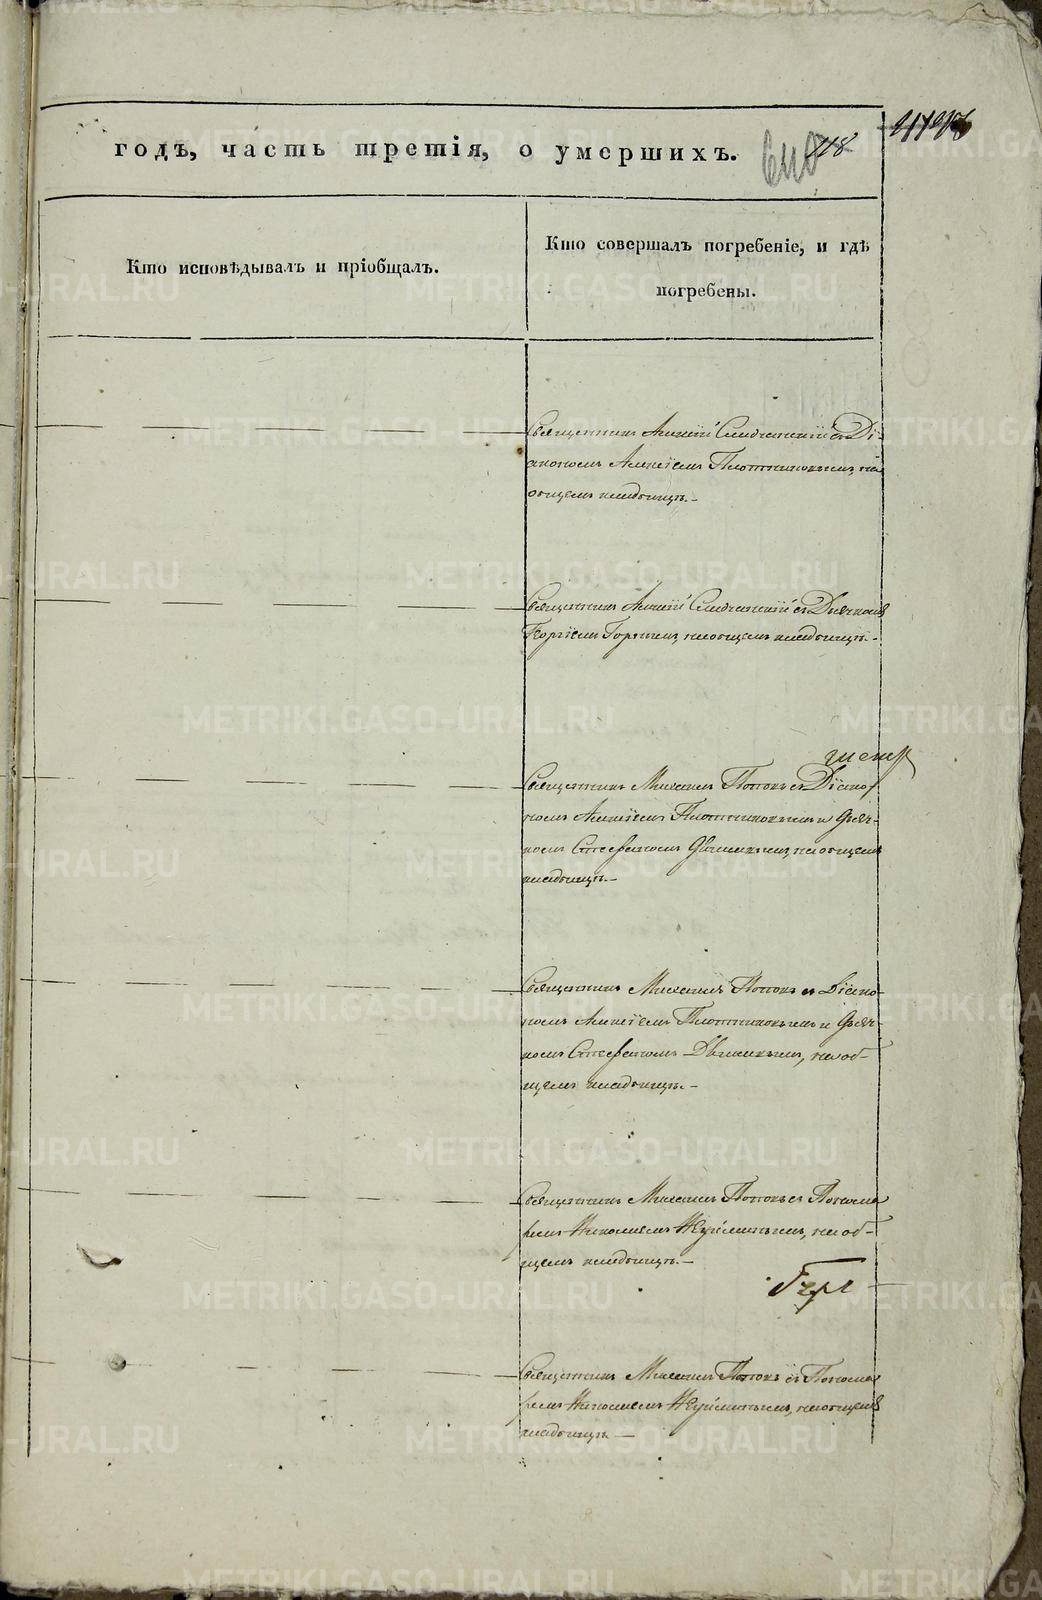 годъ, часть третія, о умершихъ.
118
Кто исповѣдывалъ и пріобщалъ.
Кто совершалъ погребеніе, и гдѣ
погребены.
Священникъ Алексій съ Ді-
акономъ Алексіемъ Плотниковымъ, на
общемъ кладбищѣ.-
Священникъ Алексій съ Дьячкомъ
Георгіемъ на общемъ кладбищѣ.-
Священникъ Михаилъ Поповъ съ Діако-
номъ Алексіемъ Плотниковымъ и Дьяч-
комъ Стефаномъ на общемъ
кладбищѣ.-
Священникъ Михаилъ Поповъ съ Діако-
номъ Алексіемъ Плотниковымъ и Дьяч-
комъ Стефаномъ на об-
щемъ кладбищѣ.-
Священникъ Михаилъ Поповъ съ Понома
ремъ Николаемъ на об-
щемъ кладбищѣ.-
Священникъ Михаилъ Поповъ съ Понома
ремъ Николаемъ на общемъ
кладбищѣ.-
METRIKI.GASO-URAL.RU